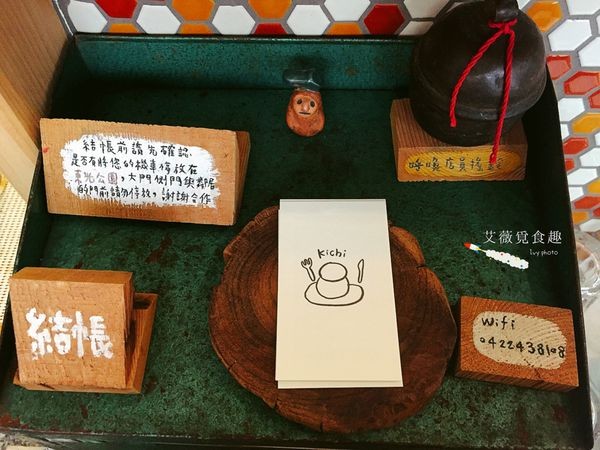 結帳前請先確認
是否有將您的機車停放在
東光公園,大門側門與鄰居
的門前請勿停放,謝謝合作
呼喚店員搖一
艾薇覓食趣
Ivy photo
kichi
結帳
Wifi
0422438108